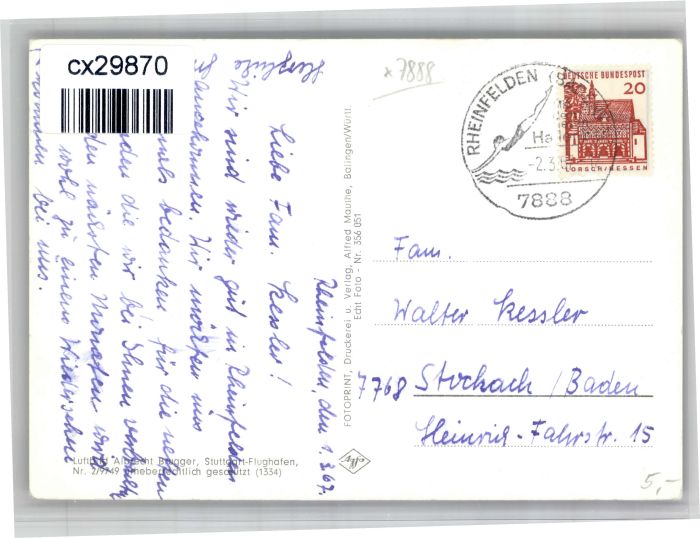 cx29870
x 7888
RHEINFELDEN (BADEN)
Ha
-2.3.
7888
DEUTSCHE BUNDESPOST
20
LORSCH/HESSEN
Rheinfelden, den 1.3.67.
Liebe Fam. Kessler!
Herzliche
Wir sind wieder gut in Rheinfelden
Wir möchten uns
mals bedanken für die netten
die wir bei Ihnen
den nächsten Monaten
wohl zu einem Wiedersehen
bei uns.
FOTOPRINT, Druckerei u. Verlag, Alfred Mauthe, Balingen/Württ.
Echt Foto - Nr. 356 051
Fam.
Walter Kessler
7768 Stockach / Baden
Heinrich-Fahrstr. 15
Luftbild Albrecht Brugger, Stuttgart-Flughafen,
Nr. 2/9749 urheberrechtlich geschützt (1334)
Agfa
5,-